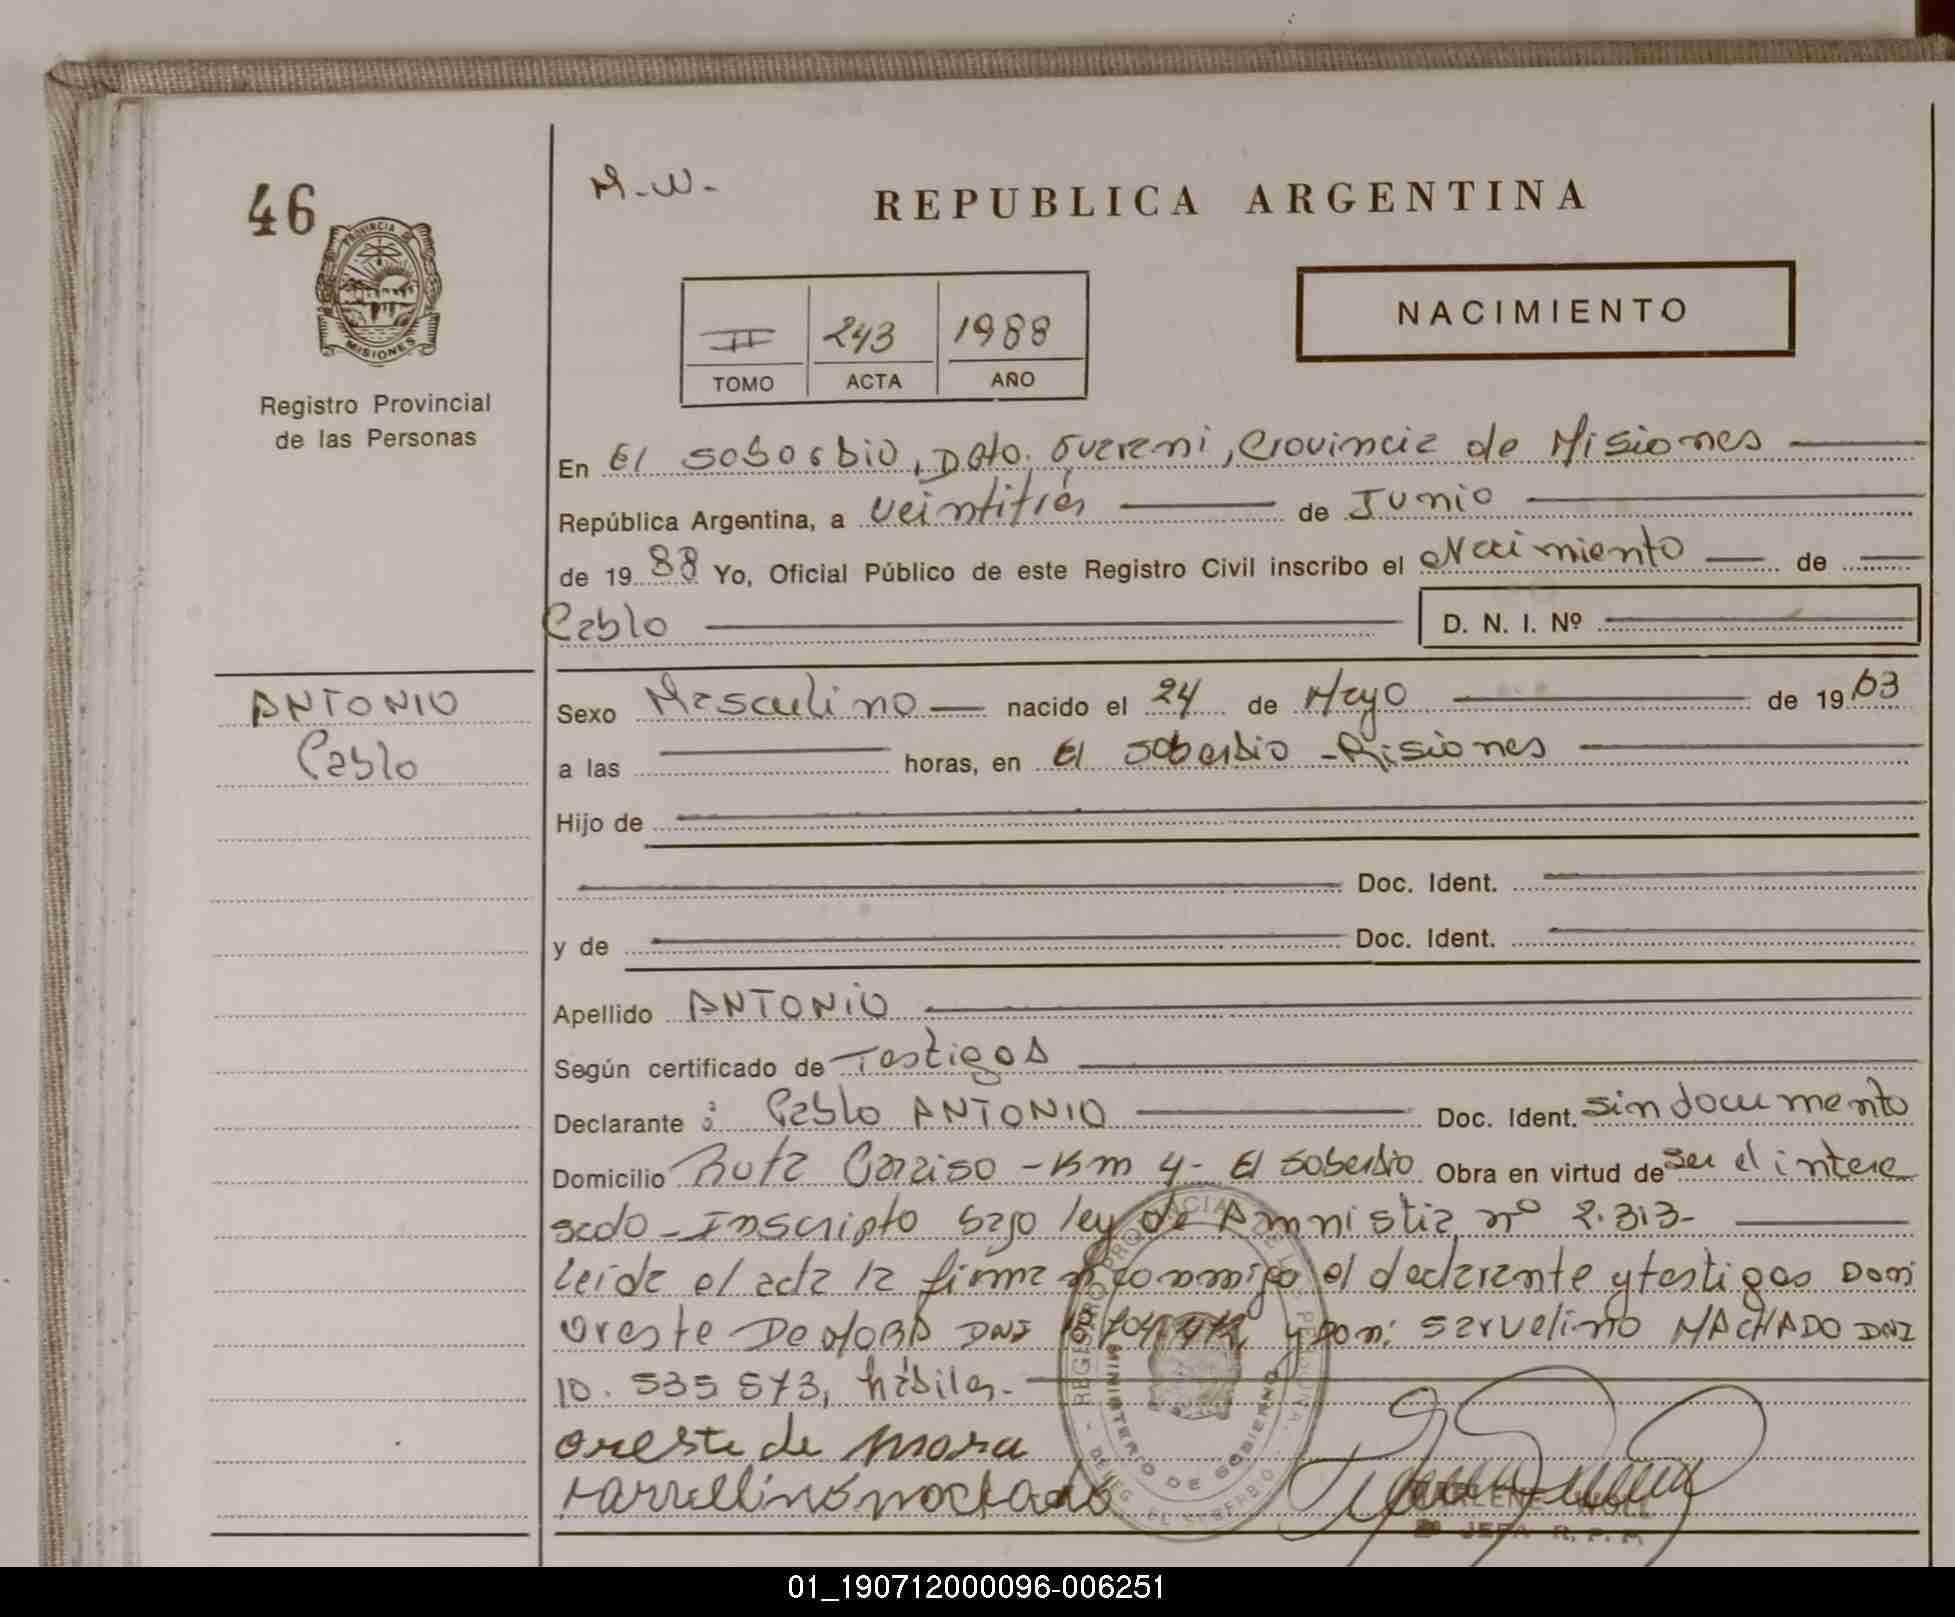 46
M.W.
REPUBLICA ARGENTINA
PROVINCIA DE
MISIONES
Registro Provincial
de las Personas
NACIMIENTO
II 243 1988
TOMO ACTA AÑO
En El Soberbio, Dpto. Guarani, Provincia de Misiones
República Argentina, a veintitrés de Junio
de 1988 Yo, Oficial Público de este Registro Civil inscribo el Nacimiento de
Pablo D. N. I. Nº
ANTONIO
Pablo
Sexo Masculino nacido el 24 de Mayo de 1963
a las horas, en El Soberbio - Misiones
Hijo de
Doc. Ident.
y de Doc. Ident.
Apellido ANTONIO
Según certificado de Testigos
Declarante : Pablo ANTONIO Doc. Ident. sin documento
Domicilio Ruta Paraiso - Km 4 - El Soberbio Obra en virtud de ser el intere
sado - Inscripto bajo ley de Amnistia nº 2.313-
Leida el acta la firman conmigo el declarante y testigos Don:
Oreste DE MORA DNI y Don: Sarvelino MACHADO DNI
10.535 573, hábiles.-
oreste de mora
sarvellino machado
REGISTRO PROVINCIAL DE LAS PERSONAS
MINISTERIO DE GOBIERNO
DELEG. EL SOBERBIO
JEFA R. P. P.
01_190712000096-006251